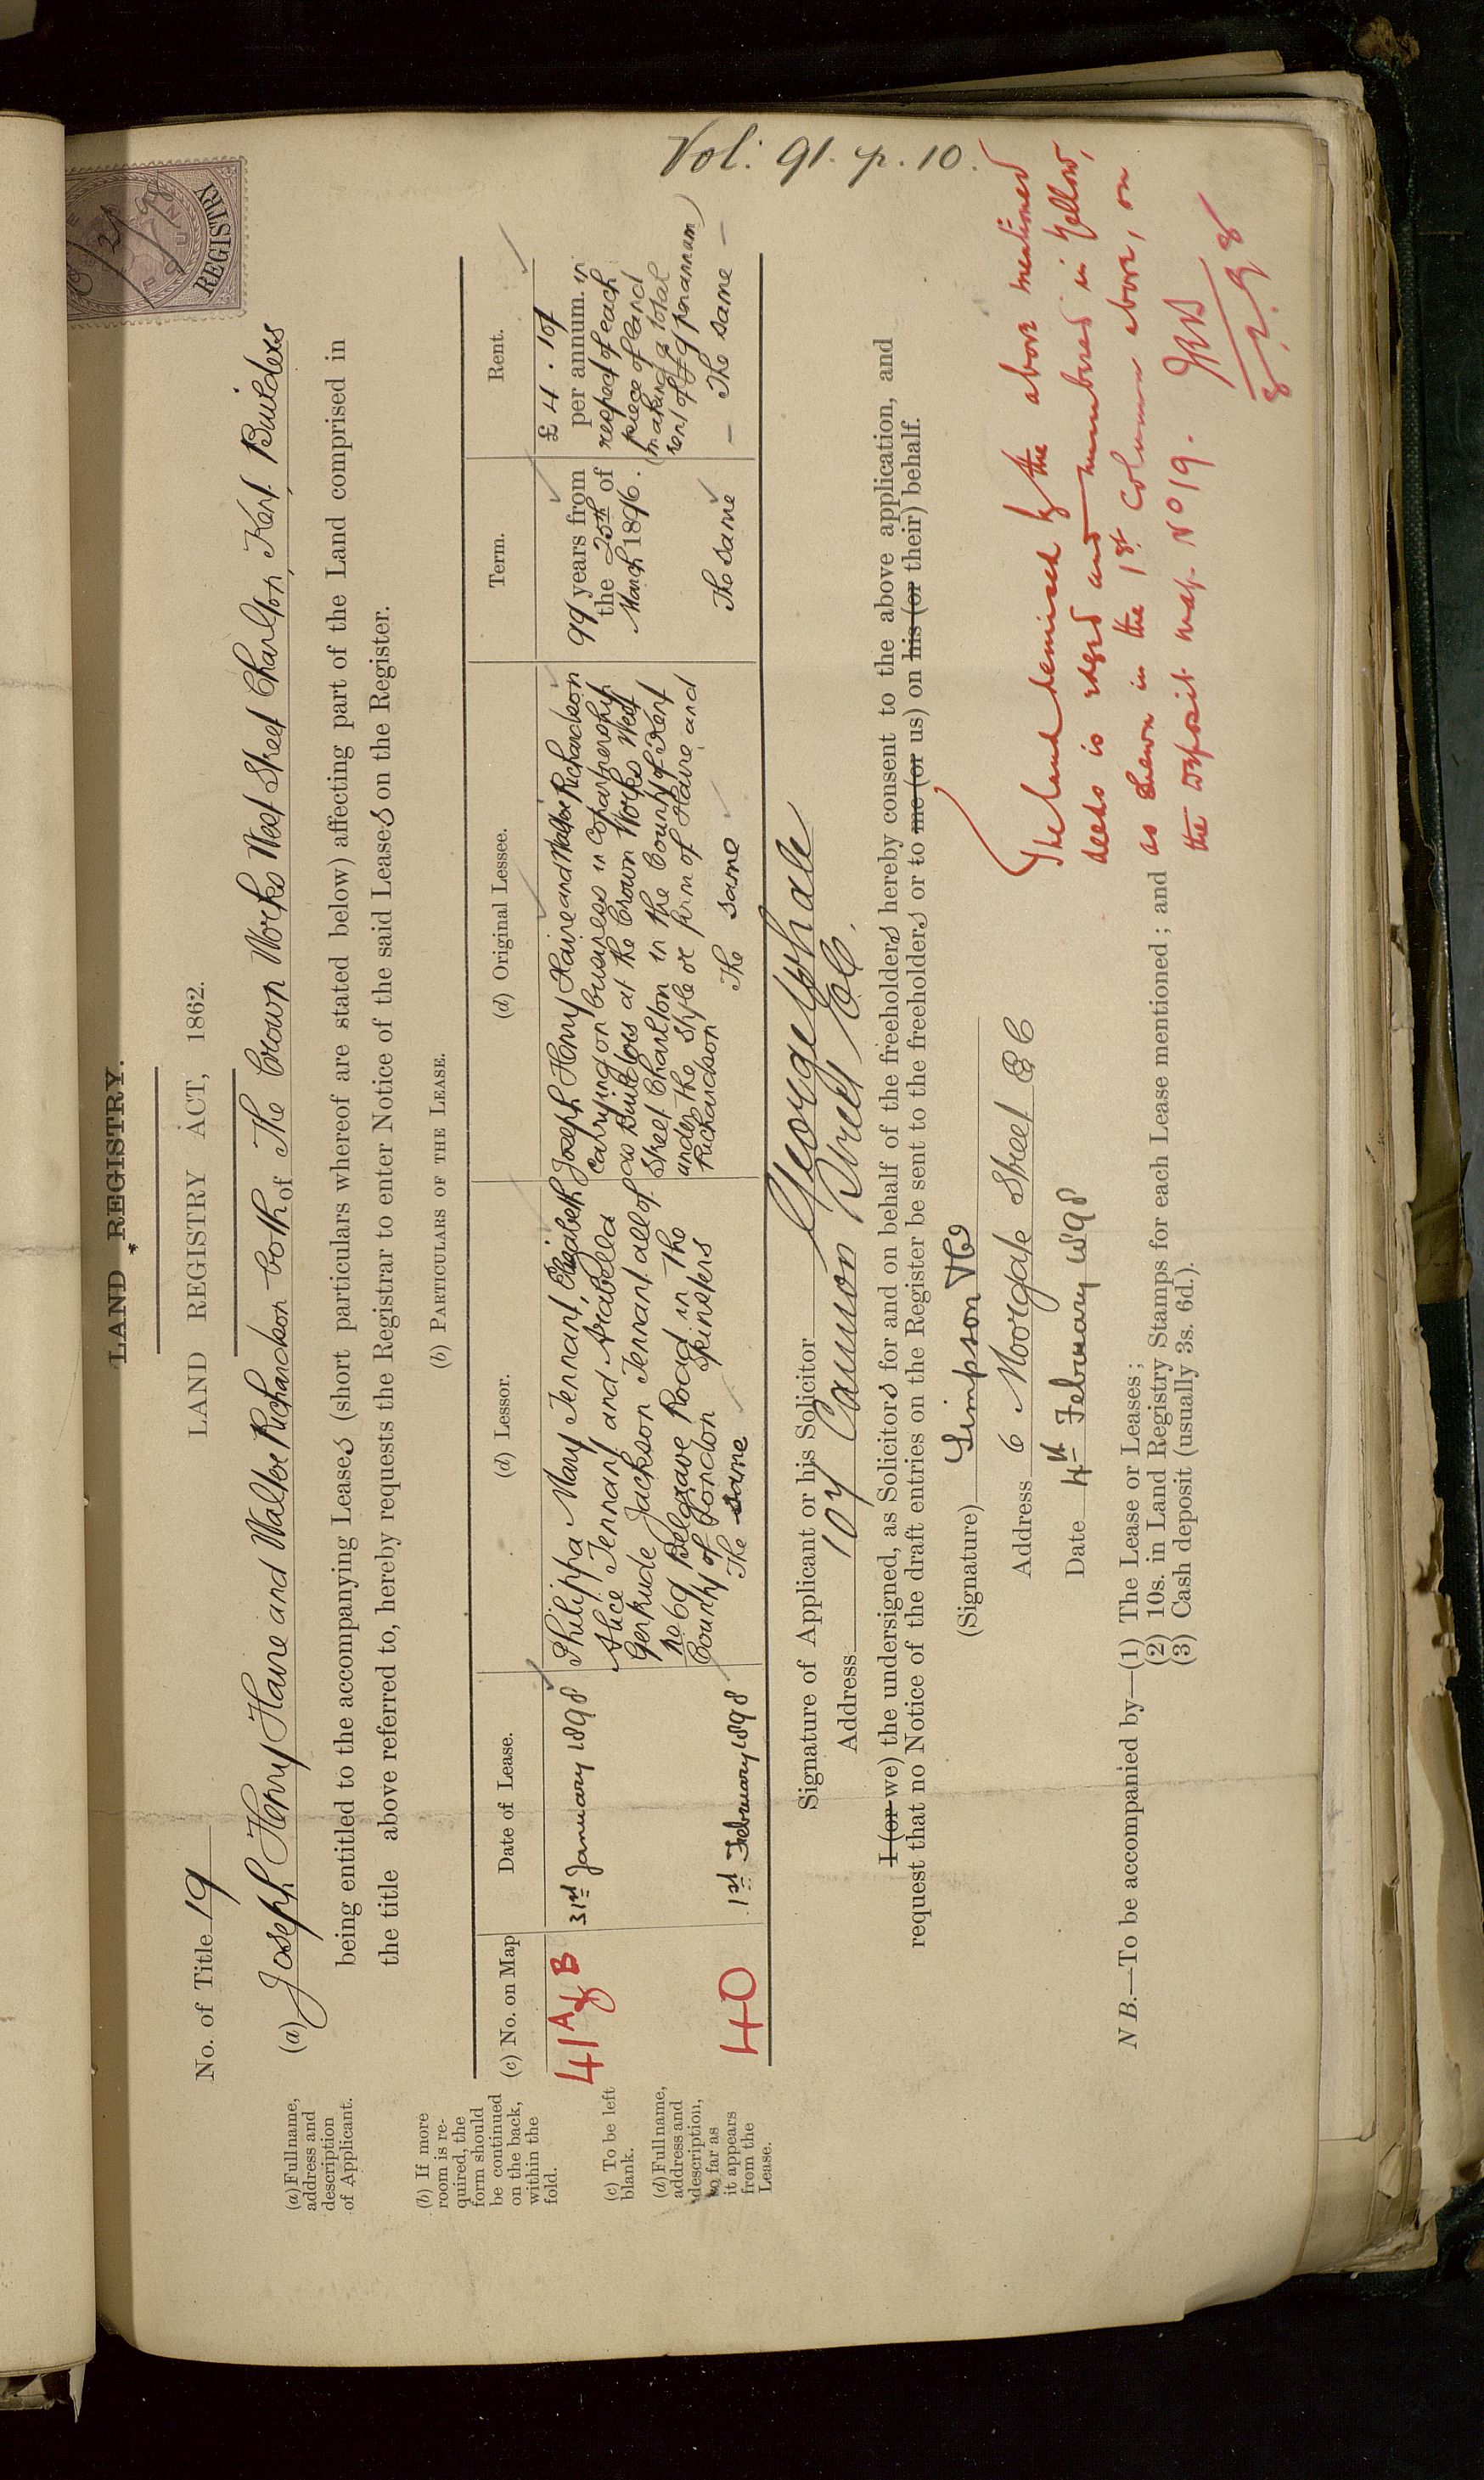 LAND REGISTRY.
LAND REGISTRY ACT, 1862.
REGISTRY
No. of Title 19
(a) Joseph Henry Haire and Walter Richardson both of The Crown Works West Street Charlton, Kent. Builders
being entitled to the accompanying Leases (short particulars whereof are stated below) affecting part of the Land comprised in
the title above referred to, hereby requests the Registrar to enter Notice of the said Leases on the Register.
(b) PARTICULARS OF THE LEASE.
(c) No. on Map
Date of Lease.
(d) Lessor.
(d) Original Lessee.
Term.
Rent.
41 A & B
31st January 1898
Philippa Mary Tennant, Elizabeth
Alice Tennant and Arabella
Gertrude Jackson Tennant all of
No 69 Belgrave Road in the
County of London Spinsters
Joseph Henry Haire and Walter Richardson
carrying on business in Copartnership
as Builders at the Crown Works West
Street Charlton in the County of Kent
under the style or firm of Haire and
Richardson
99 years from
the 25th of
March 1896.
£4.10/
per annum. in
respect of each
piece of land
(making a total
rent of £9 per annum)
40
1st February 1898
The same
The same
The same
— The same —
Vol: 91. p. 10.
Signature of Applicant or his Solicitor George Whale
Address 107 Cannon Street EC.
I (or we) the undersigned, as Solicitors for and on behalf of the freeholders hereby consent to the above application, and
request that no Notice of the draft entries on the Register be sent to the freeholders or to me (or us) on his (or their) behalf.
(Signature) Simpson &Co
Address 6 Moorgate Street EC
Date 4th February 1898
The land demised by the above mentioned
deeds is edged and numbered in Yellow,
as shewn in the 1st Column above, on
the deposit map No 19.
8.2.98
N B.—To be accompanied by—(1) The Lease or Leases;
(2) 10s. in Land Registry Stamps for each Lease mentioned; and
(3) Cash deposit (usually 3s. 6d.).
(a) Full name,
address and
description
of Applicant.
(b) If more
room is re-
quired, the
form should
be continued
on the back,
within the
fold.
(c) To be left
blank.
(d) Full name,
address and
description,
so far as
it appears
from the
Lease.